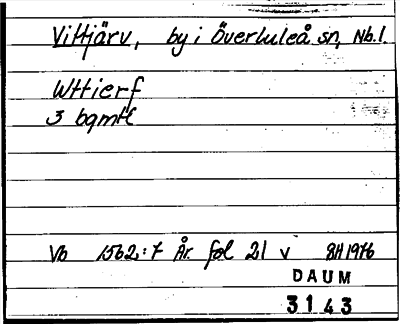 Vittjärv, by i Överluleå sn, Nb.l.
Wttierf
3 bgmtl
Vb 1562:7 År. fol 21 v BH 1976
DAUM
3143